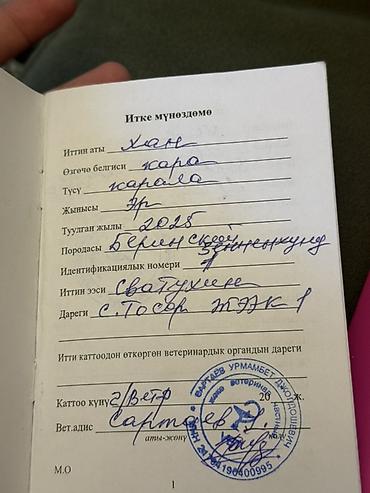 Итке мүнөздөмө
Иттин аты Хан
Өзгөчө белгиси кара
Түсү карала
Жынысы Эр
Туулган жылы 2025
Породасы Бернский зенненхунд
Идентификациялык номери 1
Иттин ээси Сватухин
Дареги с. Тосор ТЭЭК 1
Итти каттоодон өткөргөн ветеринардык органдын дареги
Каттоо күнү г/ветр 20 ж.
Вет.адис Сартаев У.
аты-жөнү кол.
САРТАЕВ УРМАМБЕТ ДЖОЛДОШЕВИЧ
жеке ветеринар частный
М.О
1